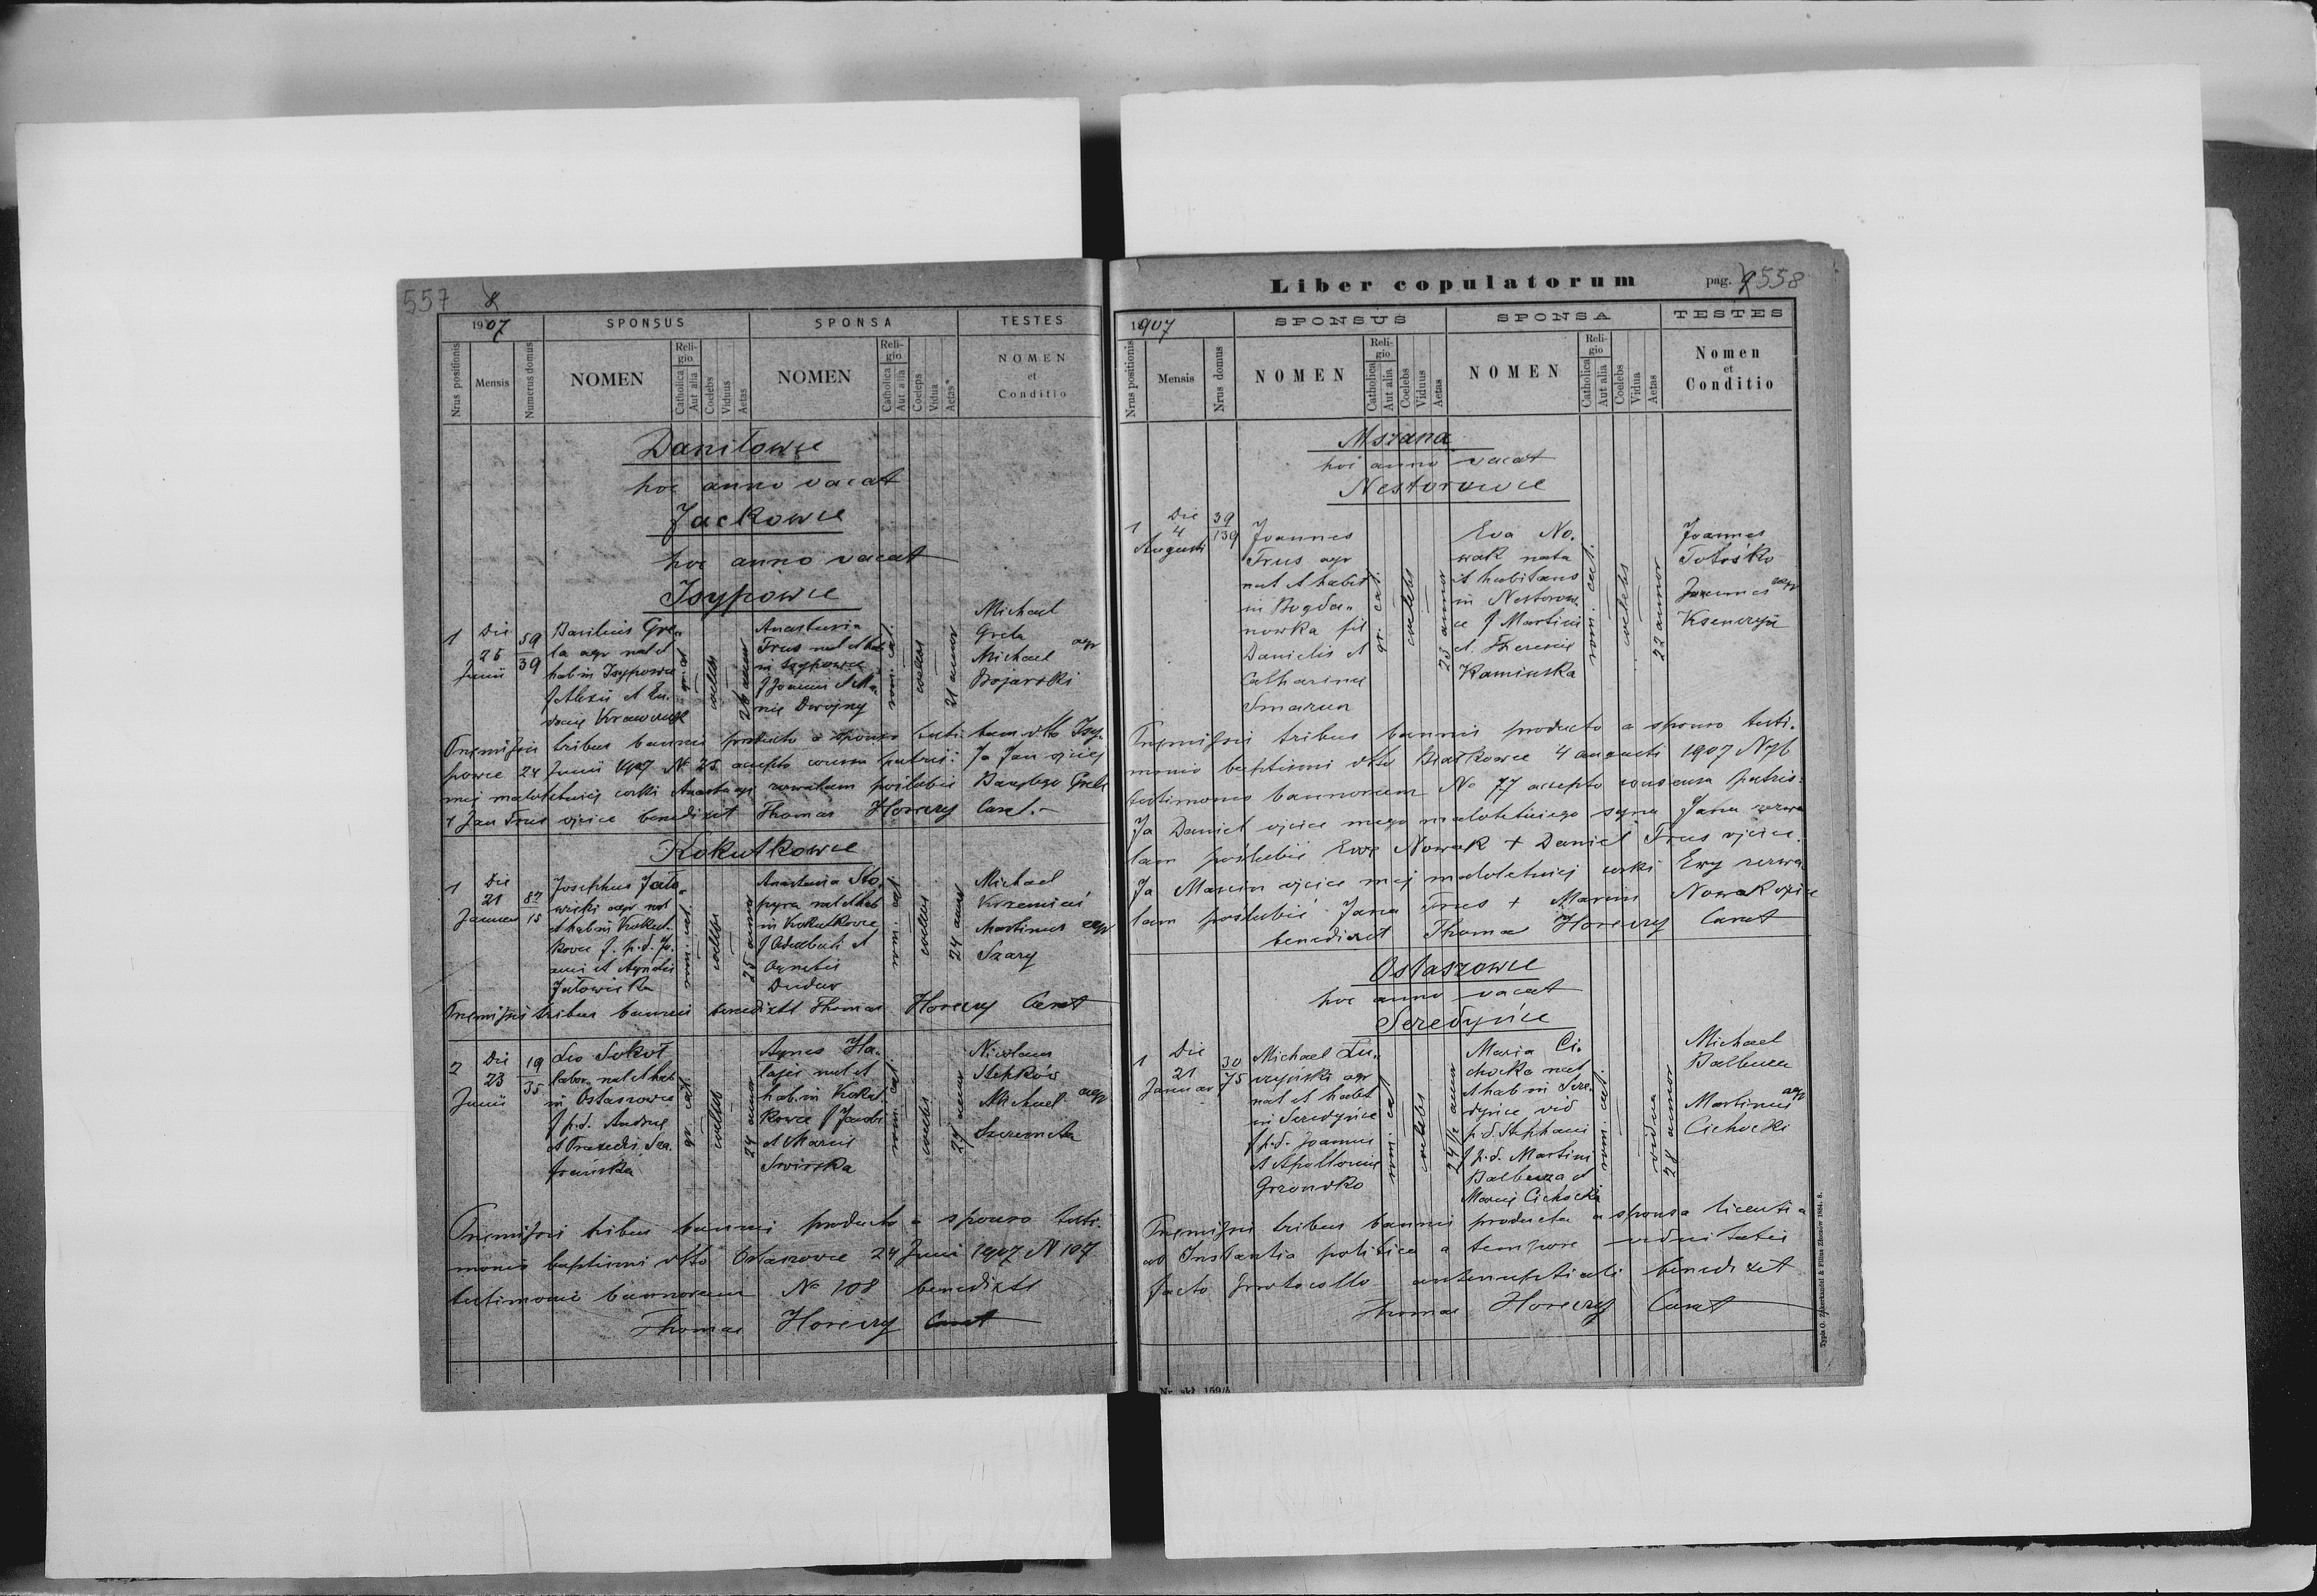 557 8
1907 SPONSUS SPONSA TESTES
Nrus positionis Mensis Numerus domus NOMEN Religio Catholica Aut alia Coelebs Viduus Aetas NOMEN Religio Catholica Aut alia Coeleps Vidua Aetas NOMEN et Conditio
Daniłowce
hoc anno vacat
Jackowce
hoc anno vacat
Isypowce
1 Die 25 Junii 59 39
Basilius Gre
la agr nat et
hab in Isypowce
f Alexii et Eu
doxie Krawczuk
gr. cat
coelebs
26 annor
Anastasia
Trus nat et hab
in Isypowce
f Joannis et Ma
rie Dwojny
rom. cat.
coelebs
21 annor
Michael
Grela agr
Michael
Bojarski
Premissis tribus bannis producto a sponso testi bann dtto Isy
powce 24 Junii 1907 N 25 accepto consensu patris: Ja Jan ojciec
mej małoletniej córki Anastazyi zezwalam poślubić Bazylego Grele
+ Jan Trus ojciec benedixit Thomas Horeczy Curat.
Kokutkowce
1 Die 21 Januar 87 15
Josephus Jało
wicki agr nat
et hab in Kokut
kowce f. p.d. Jo
anis et Agnetis
Jałowicka
rom. cat.
coelebs
25 annor
Anastasia Sto
pyra nat et hab
in Kokutkowce
f Adalberti et
Agnetis
Dudar
rom. cat
coelebs
24 annor
Michael
Krzemiń
Martinus agr
Szary
Premissis tribus bannis benedixit Thomas Horeczy Curat
2 Die 23 Junii 19 35
Leo Sokoł
labor nat et hab
in Ostaszowce
f p.d. Andree
et Praxedis Sza
frańska
gr. cat
coelebs
24 annor
Agnes Ha
łajei nat et
hab. in Kokut
kowce f Jacobi
et Marie
Swirska
rom. cat.
coelebs
24 annor
Nicolaus
Stepków
Michael agr
Szeremeta
Premissis tribus bannis producto a sponso testi
monio baptismi dtto Ostaszowce 24 Junii 1907 N 107
testimonio bannorum No 108 benedixit
Thomas Horeczy Curat
Liber copulatorum pag. 9 558
1907 SPONSUS SPONSA TESTES
Nrus positionis Mensis Nrus domus NOMEN Religio Catholica Aut alia Coelebs Viduus Aetas NOMEN Religio Catholica Aut alia Coelebs Vidua Aetas Nomen et Conditio
Mszana
hoc anno vacat
Nestorowce
1 Die 4 Augusti 39 139
Joannes
Trus agr
nat et habit
in Bogda
nowka fil
Danielis et
Catharine
Smarza
gr. cat.
coelebs
23 annor
Eva No
wak nata
et habitans
in Nestorow
ce f Martini
et Theresie
Kaminska
rom. cat.
coelebs
22 annor
Joannes
Totośko
Joannes agr
Ksenczyn
Premissis tribus bannis producto a sponso testi
monio baptismi dtto Białkowce 4 augusti 1907 N 76
testimonio bannorum No 77 accepto consensu patris:
Ja Daniel ojciec mego małoletniego syna Jana zezwa
lam poślubić Ewę Nowak + Daniel Trus ojciec.
Ja Marcin ojciec mej małoletniej córki Ewy zezwa
lam poślubić Jana Trus + Marcin Nowak ojciec
benedixit Thomas Horeczy Curat
Ostaszowce
hoc anno vacat
Seredyńce
1 Die 21 Januar 30 75
Michael Łu
czyński agr
nat et habit
in Seredyńce
f p.d. Joannis
et Apollonie
Grzondko
rom. cat
coelebs
24 1/2 annor
Maria Ci
chocka nat
et hab in Sere
dyńce vid
p.d. Stephani
f p.d. Martini
Balbuza et
Marie Cichocki
rom. cat.
vidua
28 annor
Michael
Balbuza
Martinus agr
Cichocki
Premissis tribus bannis producta a sponsa licentia
ab Instantia politica a tempore viduitatis
facto protocollo antenuptiali benedixit
Thomas Horeczy Curat
Typis O. Zukerkandel & Filius Złoczów 1884. 8.
Nr. skł. 159/4